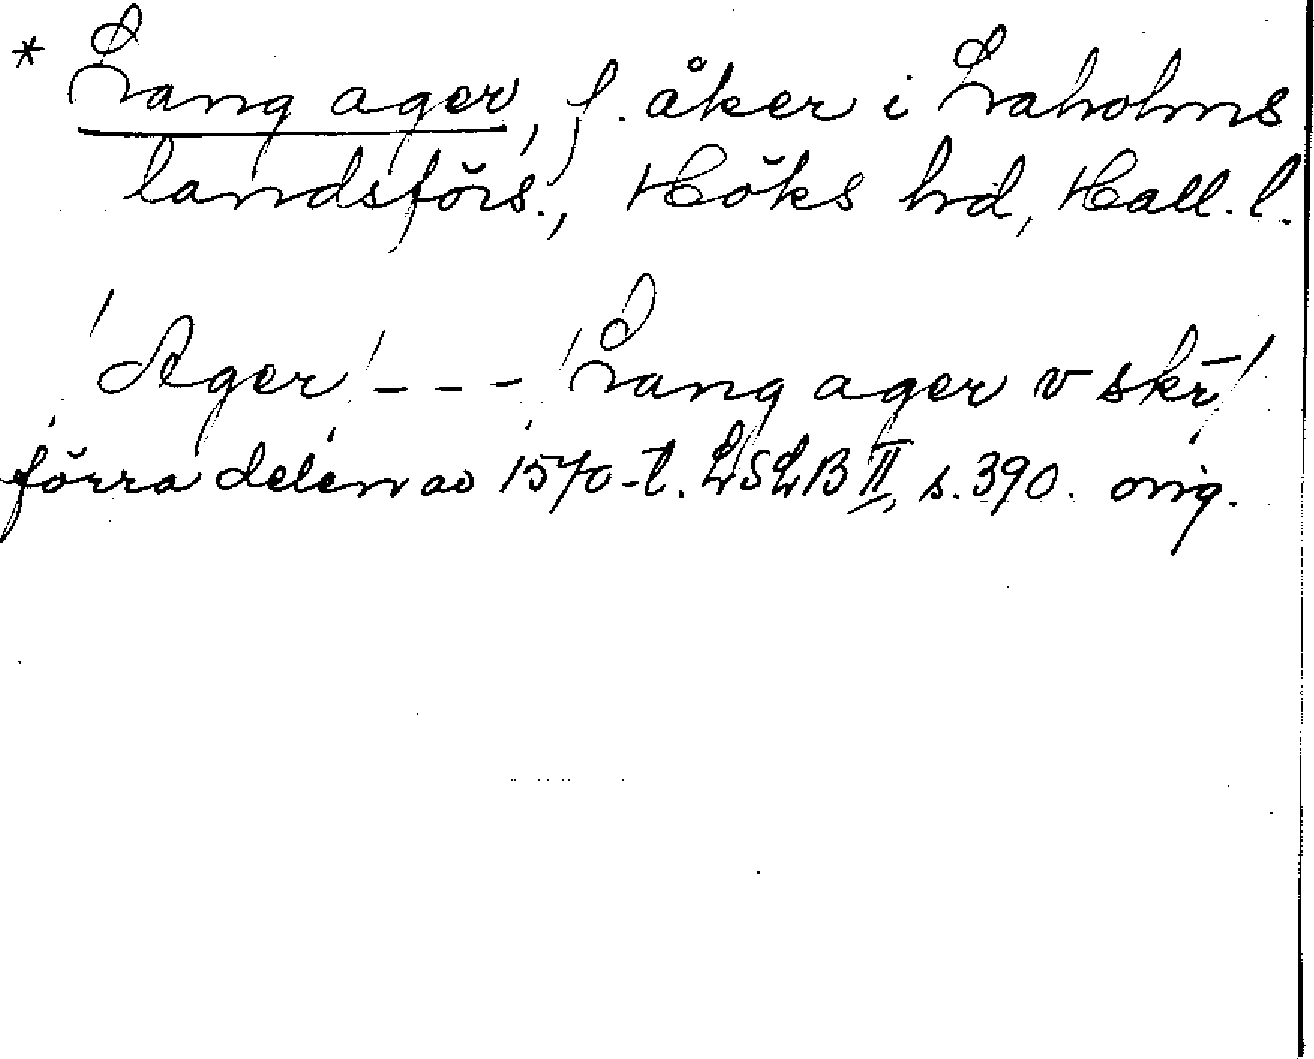 * Lang ager, f. åker i Laholms
landsförs., Höks hrd, Hall. l.
'Ager' - - - 'Lang ager v skr̄'
förra delen av 1570-t. LSLB II, s. 390. orig.